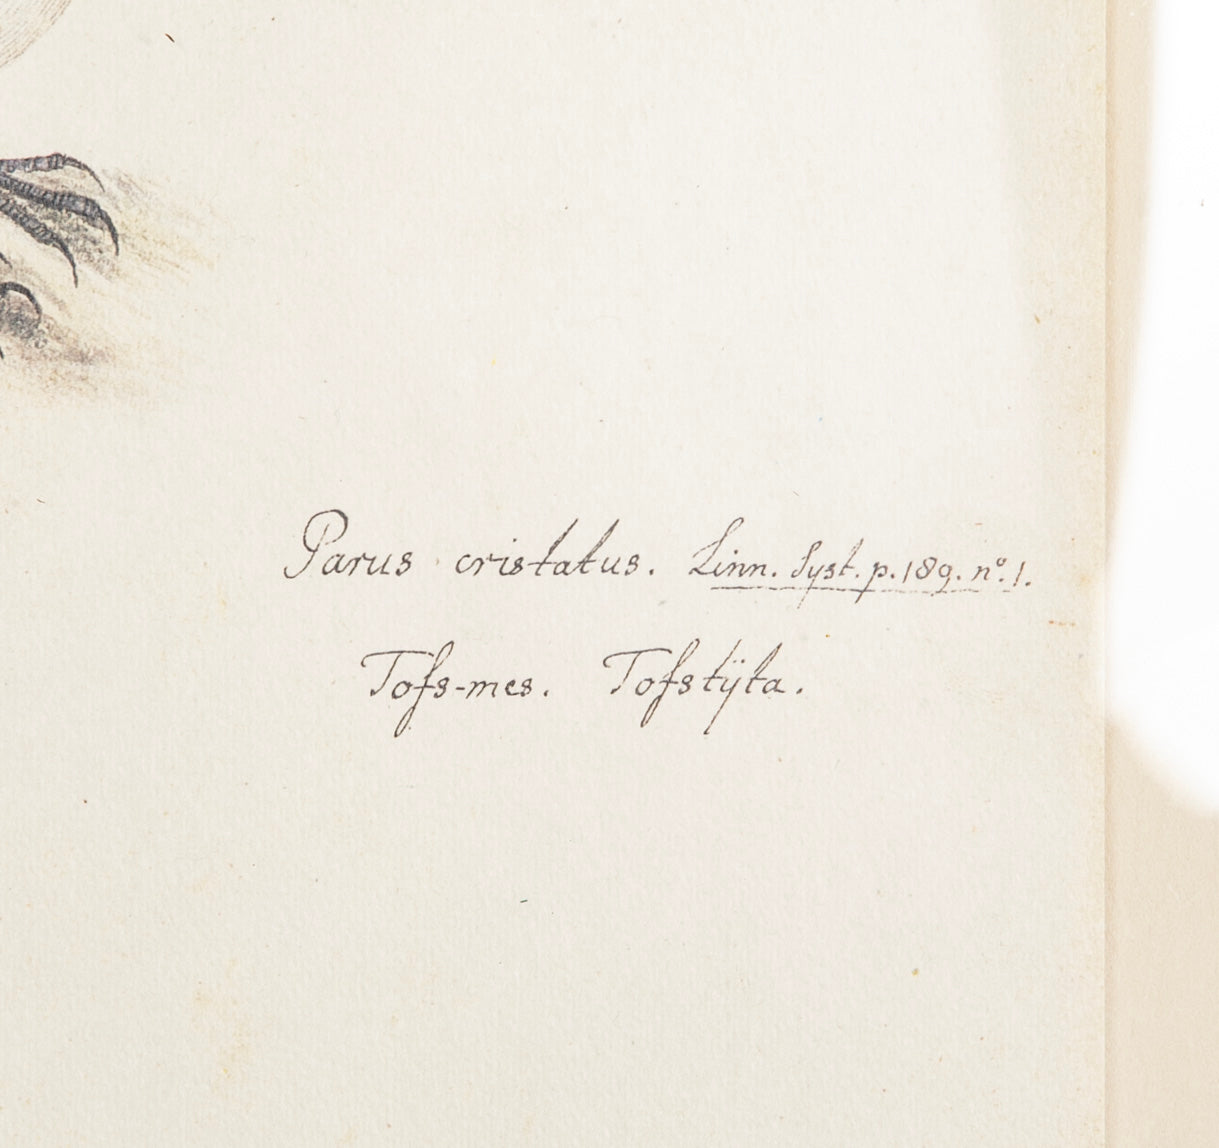 Parus cristatus. Linn. Syst. p. 189. nº. 1.
Tofs-mes. Tofstÿta.